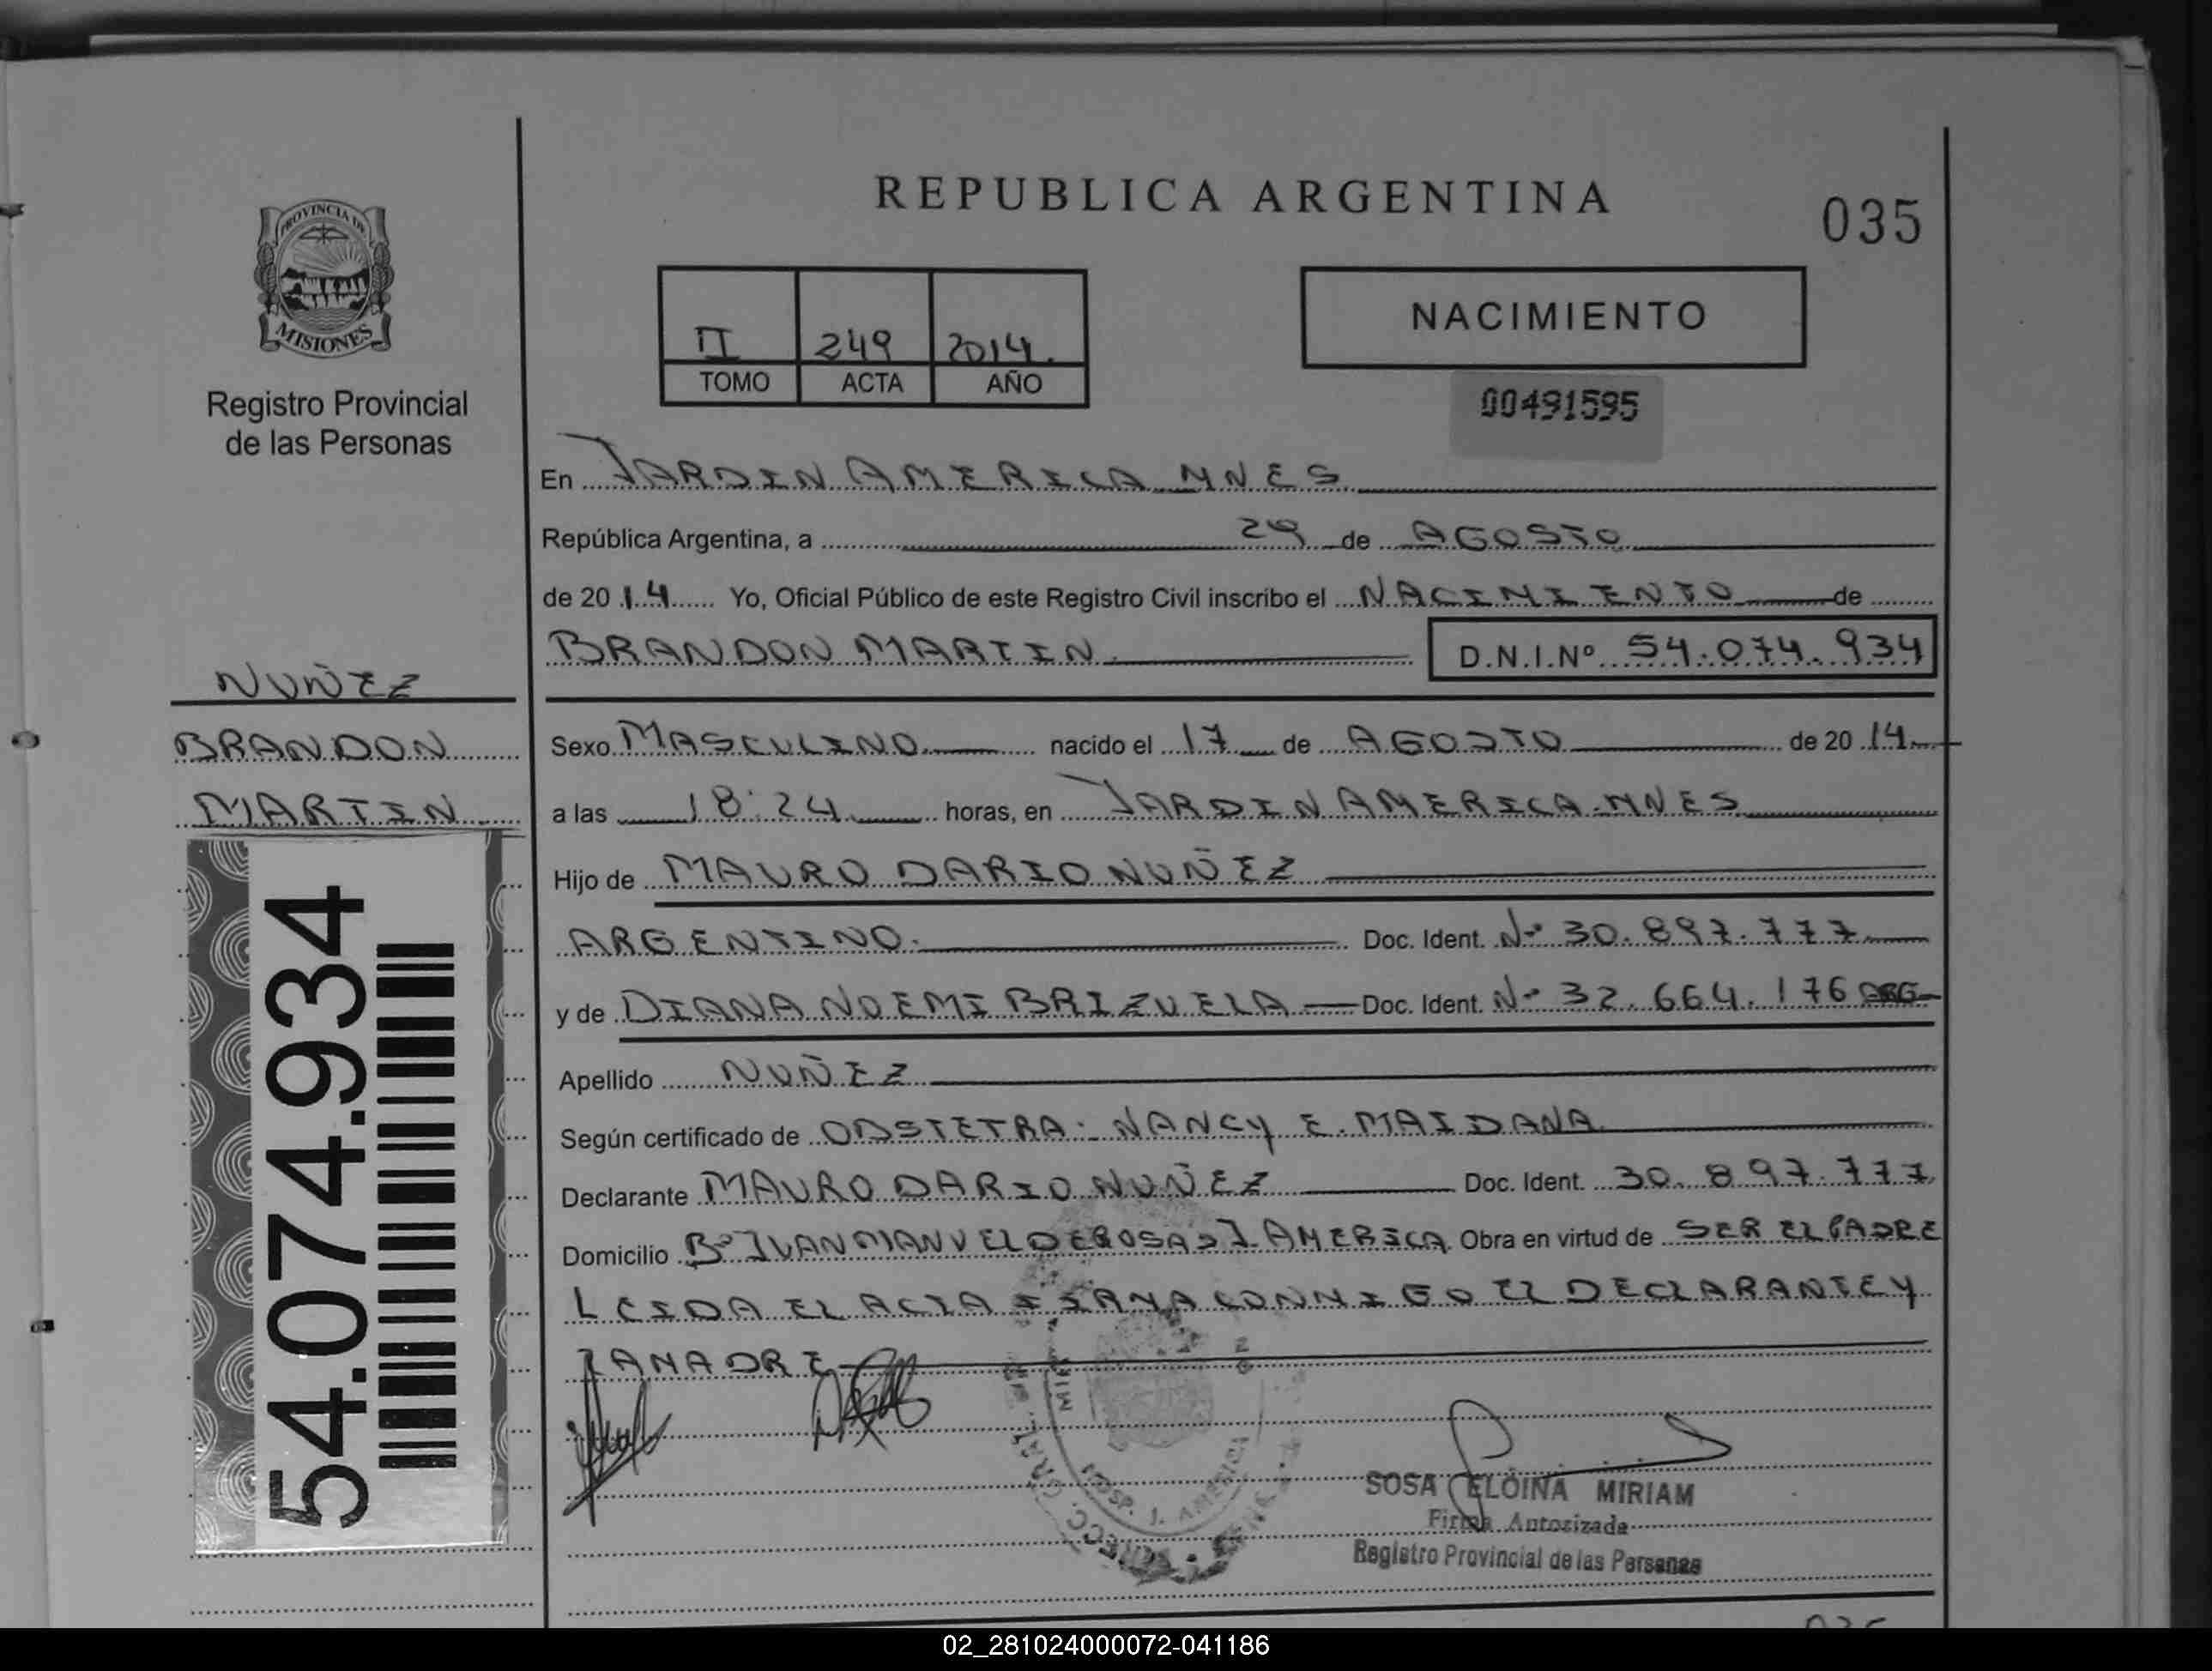 REPUBLICA ARGENTINA
035
PROVINCIA DE
MISIONES
Registro Provincial
de las Personas
II 249 2014.
TOMO ACTA AÑO
NACIMIENTO
00491595
En JARDIN AMERICA MNES
República Argentina, a 29 de AGOSTO
de 2014 Yo, Oficial Público de este Registro Civil inscribo el NACIMIENTO de
BRANDON MARTIN D.N.I.Nº 54.074.934
NUÑEZ
BRANDON
MARTIN
54.074.934
Sexo MASCULINO nacido el 17 de AGOSTO de 2014
a las 18:24 horas, en JARDIN AMERICA-MNES
Hijo de MAURO DARIO NUÑEZ
ARGENTINO. Doc. Ident. Nº 30.897.777
y de DIANA NOEMI BRIZUELA Doc. Ident. Nº 32.664.176 ARG
Apellido NUÑEZ
Según certificado de OBSTETRA. NANCY E. MAIDANA
Declarante MAURO DARIO NUÑEZ Doc. Ident. 30.897.777
Domicilio Bº JUAN MANUEL DE ROSAS J. AMERICA Obra en virtud de SER EL PADRE
LEIDA EL ACTA FIRMA CONMIGO EL DECLARANTE Y
LA MADRE
HOSP. J. AMERICA
SOSA ELOINA MIRIAM
Firma Autorizada
Registro Provincial de las Personas
02_281024000072-041186